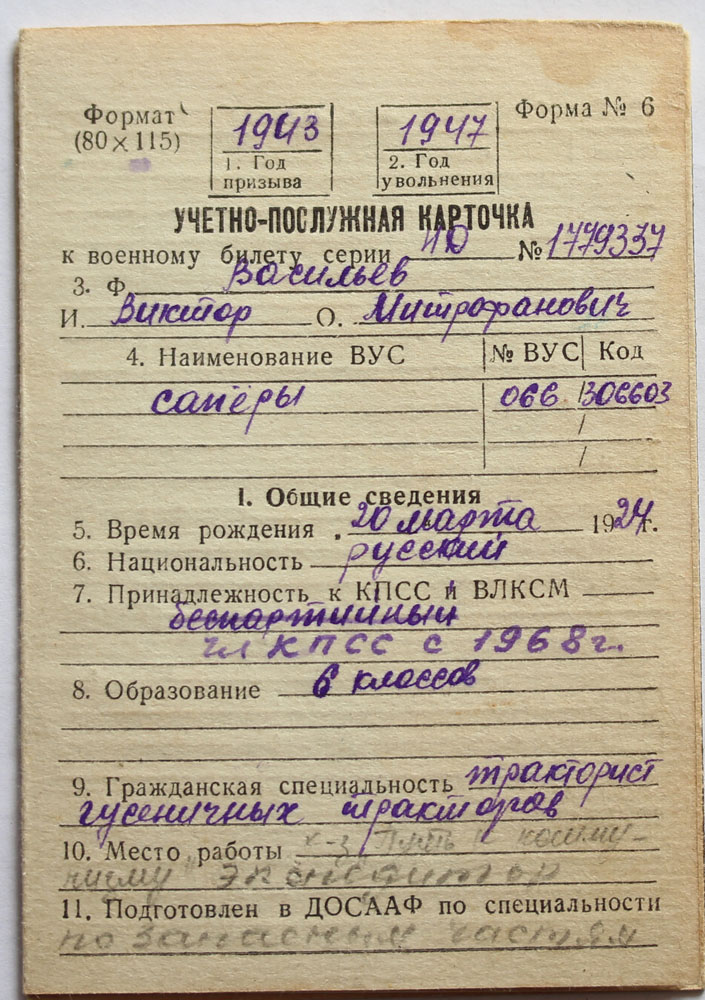 Формат
(80×115)
1943
1. Год
призыва
1947
2. Год
увольнения
Форма № 6
УЧЕТНО-ПОСЛУЖНАЯ КАРТОЧКА
к военному билету серии НО № 1779337
3. Ф. Васильев
И. Виктор О. Митрофанович
4. Наименование ВУС № ВУС Код
сапёры 066 /306603
/
/
1. Общие сведения
5. Время рождения 20 марта 1924г.
6. Национальность русский
7. Принадлежность к КПСС и ВЛКСМ
беспартийный
чл КПСС с 1968г.
8. Образование 6 классов
9. Гражданская специальность тракторист
гусеничных тракторов
10. Место работы к-з "Путь к комму-
низму" экспедитор
11. Подготовлен в ДОСААФ по специальности
по запасным частям